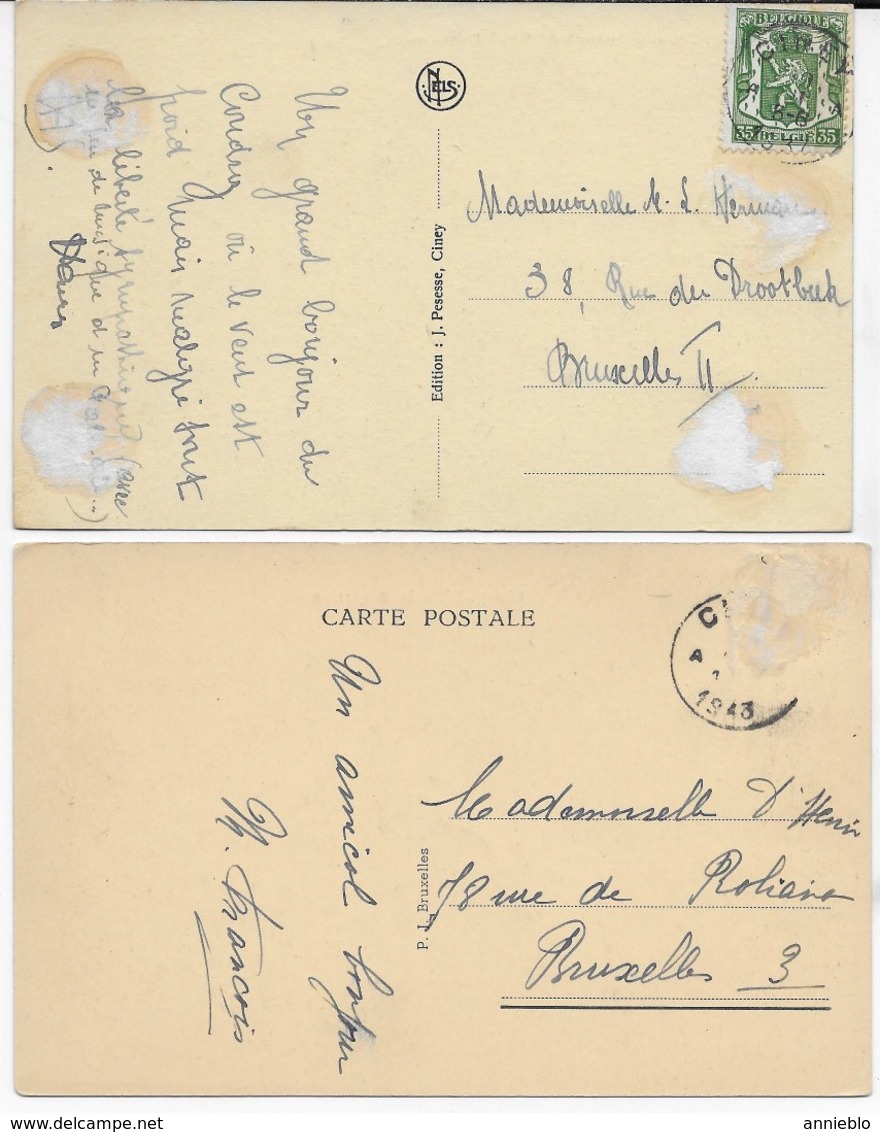 Un grand bonjour du
Condroz où le vent est
froid mais malgré tout
la liberté sympathique (avec
un peu de musique et un
...)
NELS
Edition : J. Pesesse, Ciney
BELGIQUE
35 BELGIE 35
CINEY
Mademoiselle M. L. Herman
38, Rue du Drootbeek
Bruxelles II
CARTE POSTALE
Un amical bonjour
M. Francois
P. I. Bruxelles
1943
Mademoiselle D'Henin
78 rue de Roliana
Bruxelles 3
delcampe.net
annieblo